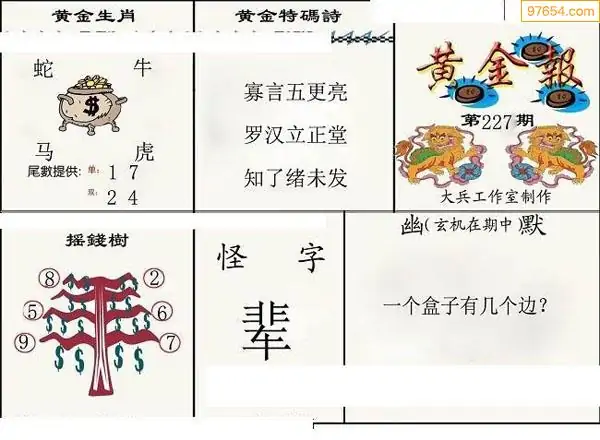 97654.com
黄金生肖
蛇 牛
$
马 虎
尾數提供: 单: 1 7
双: 2 4
黄金特碼詩
寡言五更亮
罗汉立正堂
知了绪未发
黄金報
第227期
大兵工作室制作
摇錢樹
⑧ ②
⑤ ⑥
⑨ ⑦
$ $ $ $ $ $ $ $
怪 字
辈
幽(玄机在期中)默
一个盒子有几个边?